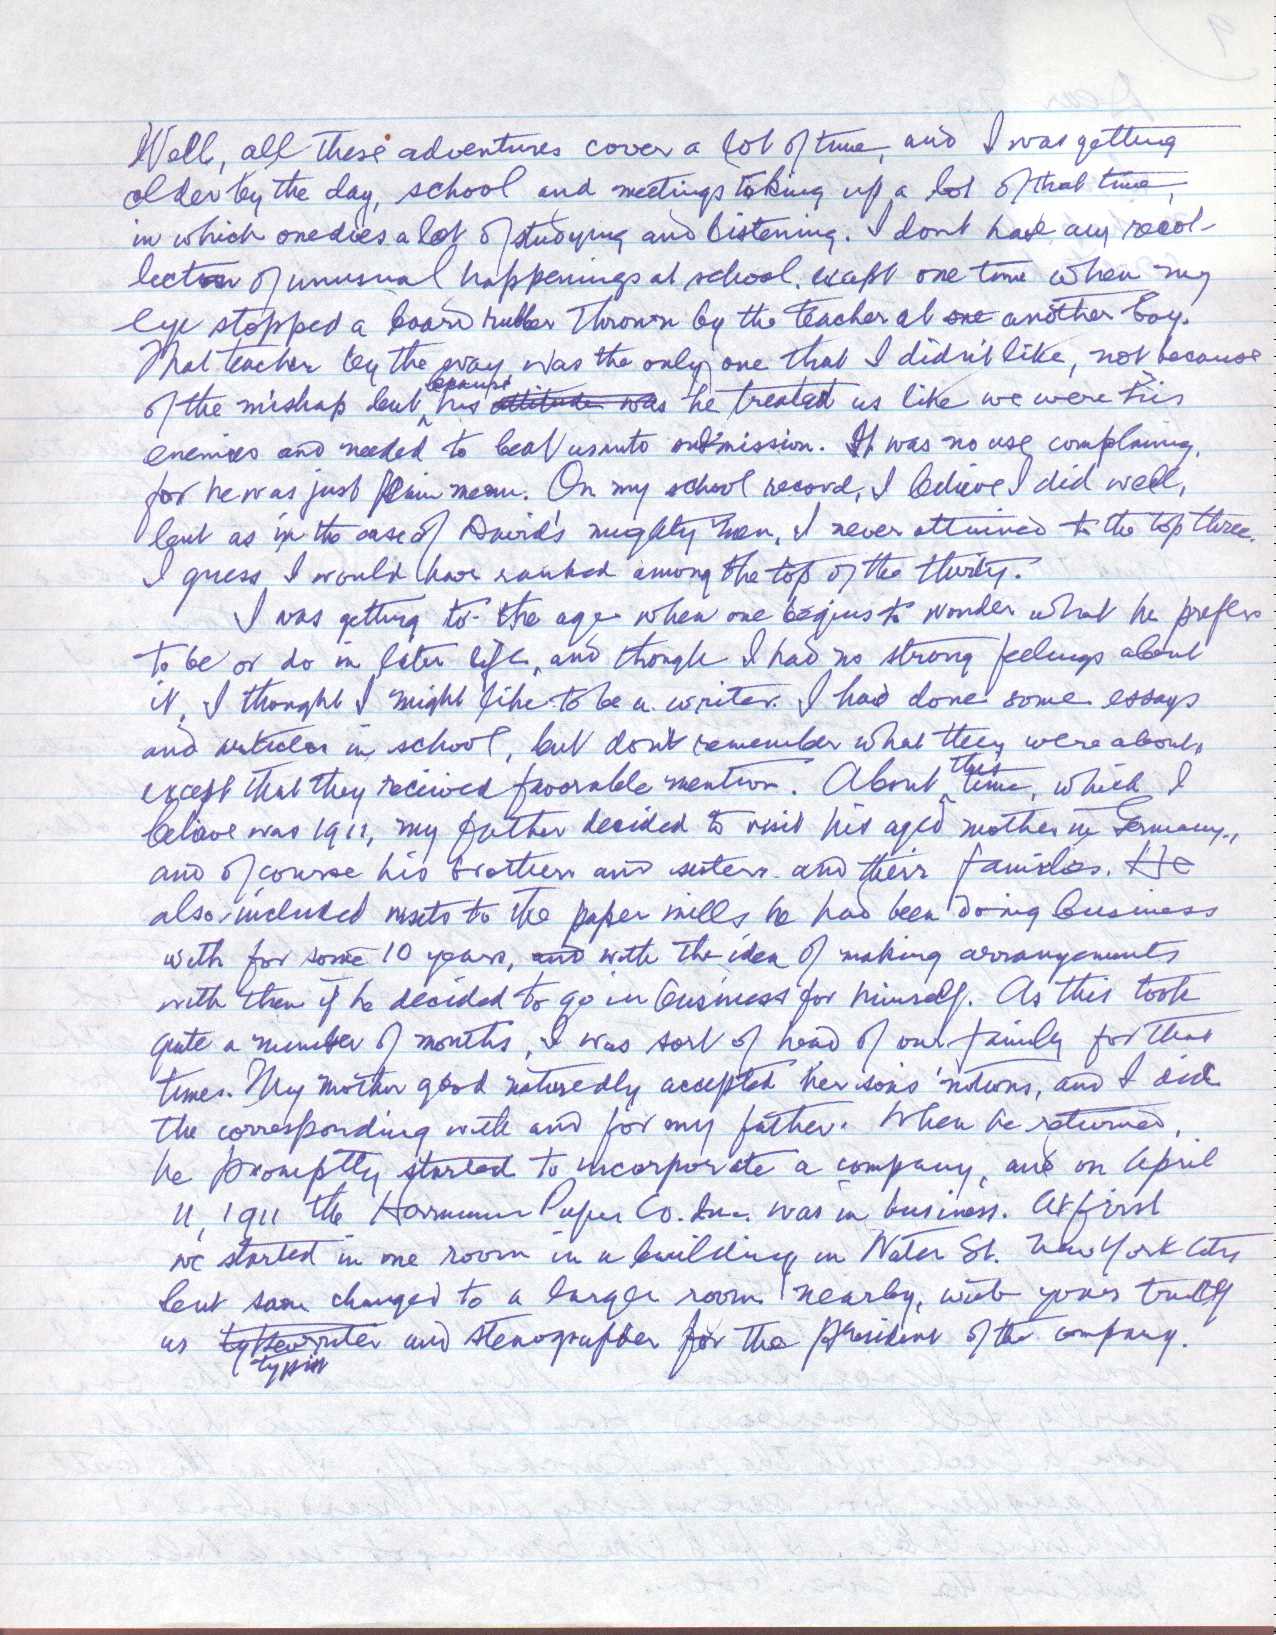 Well, all these adventures cover a lot of time, and I was getting
older by the day, school and meetings taking up a lot of that time,
in which one does a lot of studying and listening. I dont have any recol-
lection of unusual happenings at school, except one time when my
eye stopped a board rubber thrown by the teacher at one another boy.
That teacher by the way was the only one that I didn't like, not because
of the mishap but because his attitude was he treated us like we were his
enemies and needed to beat us into submission. It was no use complaining,
for he was just plain mean. On my school record, I believe I did well,
but as in the case of David's mighty men, I never attained to the top three.
I guess I would have ranked among the top of the thirty.
I was getting to the age when one begins to wonder what he prefers
to be or do in later life, and though I had no strong feelings about
it, I thought I might like to be a writer. I had done some essays
and articles in school, but don't remember what they were about,
except that they received favorable mention. About this time, which I
believe was 1911, my father decided to visit his aged mother in Germany,
and of course his brothers and sisters and their families. He
also included visits to the paper mills he had been doing business
with for some 10 years, and with the idea of making arrangements
with them if he decided to go in business for himself. As this took
quite a number of months, I was sort of head of our family for that
times. My mother good naturedly accepted her son's notions, and I did
the corresponding with and for my father. When he returned,
he promptly started to incorporate a company, and on April
11, 1911 the Paper Co. Inc. was in business. At first
we started in one room in a building in Water St. New York City
but soon changed to a larger room nearby, with yours truly
as typewriter typist and stenographer for the President of the company.